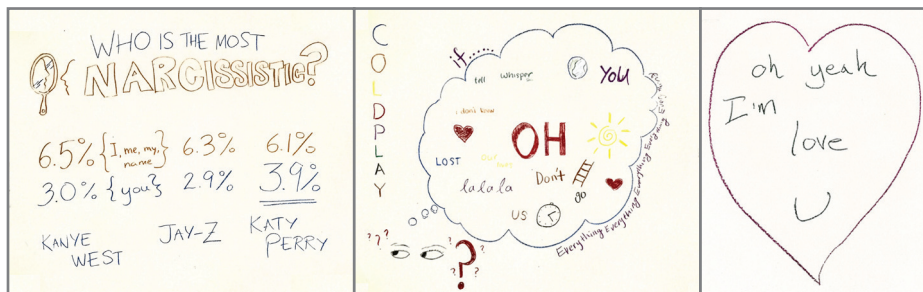 WHO IS THE MOST
NARCISSISTIC?
6.5% {I, me, my, name} 6.3% 6.1%
3.0% {you} 2.9% 3.9%
KANYE WEST JAY-Z KATY PERRY
COLDPLAY
if......
tell whisper YOU
i don't know
OH
LOST
la la la Don't
go
US
Everything Everything Everything Everything
???
? ? ? ? ?
oh yeah
I'm
love
U